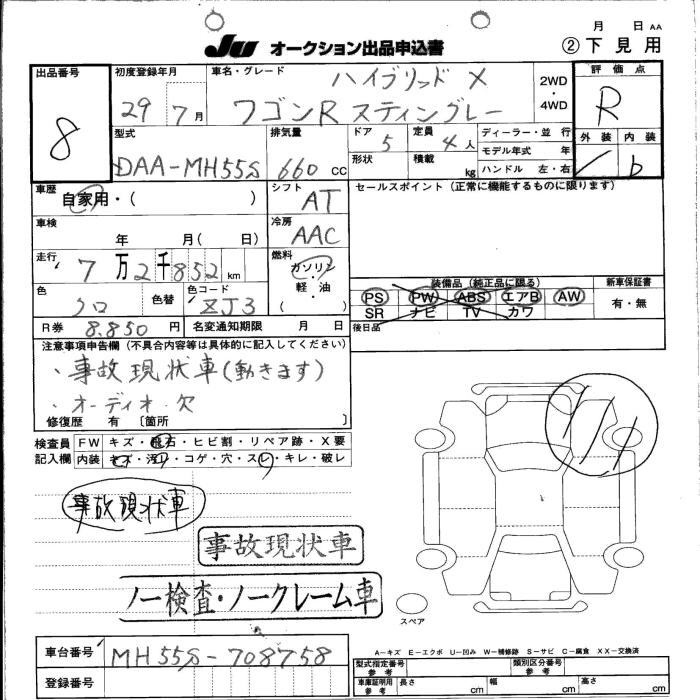 月 日 AA
JU オークション出品申込書
② 下見用
出品番号
8
初度登録年月
29 7月
車名・グレード
ハイブリッド X
ワゴンR スティングレー
2WD
・
4WD
評価点
R
外装 内装
b
型式
DAA-MH55S
排気量
660 cc
ドア 5
形状
定員 4人
積載 kg
ディーラー・並行
モデル年式 年
ハンドル 左・右
車歴
自家用・( )
シフト
AT
車検
年 月( 日)
冷房
AAC
走行
7万2千852 km
燃料
ガソリン
軽・油
( )
色
クロ
色替
色コード
ZJ3
R券 8.850 円
名変通知期限 月 日
セールスポイント(正常に機能するものに限ります)
装備品(純正品に限る)
PS PW ABS エアB AW
SR ナビ TV カワ
新車保証書
有・無
後日品
注意事項申告欄(不具合内容等は具体的に記入してください)
・事故現状車(動きます)
・オーディオ欠
修復歴 有 〔箇所 〕
検査員
記入欄
FW キズ・飛石・ヒビ割・リペア跡・X要
内装 キズ・汚れ・コゲ・穴・スレ・キレ・破レ
事故現状車
事故現状車
ノー検査・ノークレーム車
スペア
A-キズ E-エクボ U-凹み W-補修跡 S-サビ C-腐食 XX-交換済
車台番号
MH55S-708758
登録番号
型式指定番号
参考
類別区分番号
参考
車庫証明用
参考
長さ cm
幅 cm
高さ cm